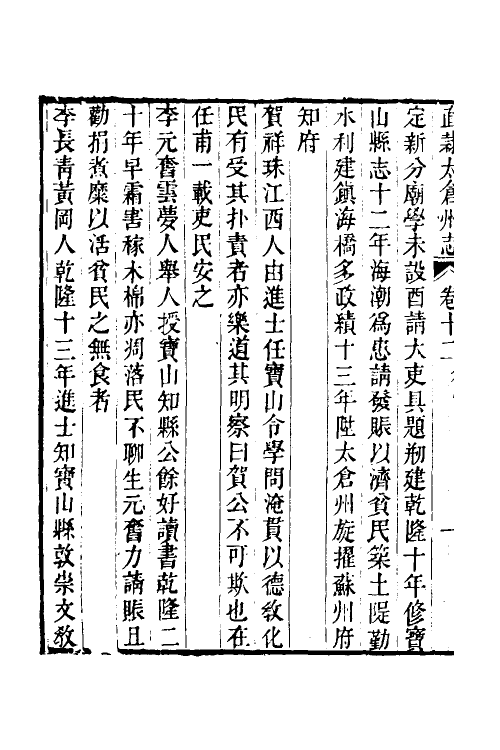 直隷太倉州志 卷十二
定新分廟學未設酉請大吏具題剏建乾隆十年修寶
山縣志十二年海潮爲患請發賑以濟貧民築土隄勤
水利建鎮海橋多政績十三年陞太倉州旋擢蘇州府
知府
賀祥珠江西人由進士任寶山令學問淹貫以德敎化
民有受其扑責者亦樂道其明察曰賀公不可欺也在
任甫一載吏民安之
李元奮雲夢人舉人授寶山知縣公餘好讀書乾隆二
十年早霜害稼木棉亦凋落民不聊生元奮力請賑且
勸捐煮糜以活貧民之無食者
李長青黃岡人乾隆十三年進士知寶山縣敦崇文敎